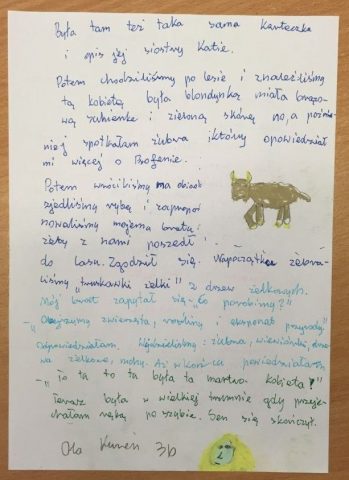 Była tam też taka sama karteczka
i opis jej siostry Katie.
Potem chodziliśmy po lesie i znaleźliśmy
tą kobietę była blondynką miała brązo-
wą sukienkę i zieloną skórę no, a później
spotkałam żubra który opowiedział
mi więcej o
Potem wróciliśmy na obiad
zjedliśmy rybę i zapropo
nowaliśmy mojemu bratu
żeby z nami poszedł
do lasu. Zgodził się. Napoczątku zebra-
liśmy "truskawki żelki" z drzew żelkowych.
Mój brat zapytał się - "Co porobimy?"
- "Obejrzymy zwierzęta, rośliny i eksponat przyrody"
odpowiedziałam. Widzieliśmy: żubra, wiewiórki, drze-
wa żelkowe, Aż wkońcu powiedziałam
- "To ta to ta była ta martwa kobieta!"
Teraz była w wielkiej trumnie gdy przeje-
chałam ręką po szybie. Sen się skończył.
Ola 3b